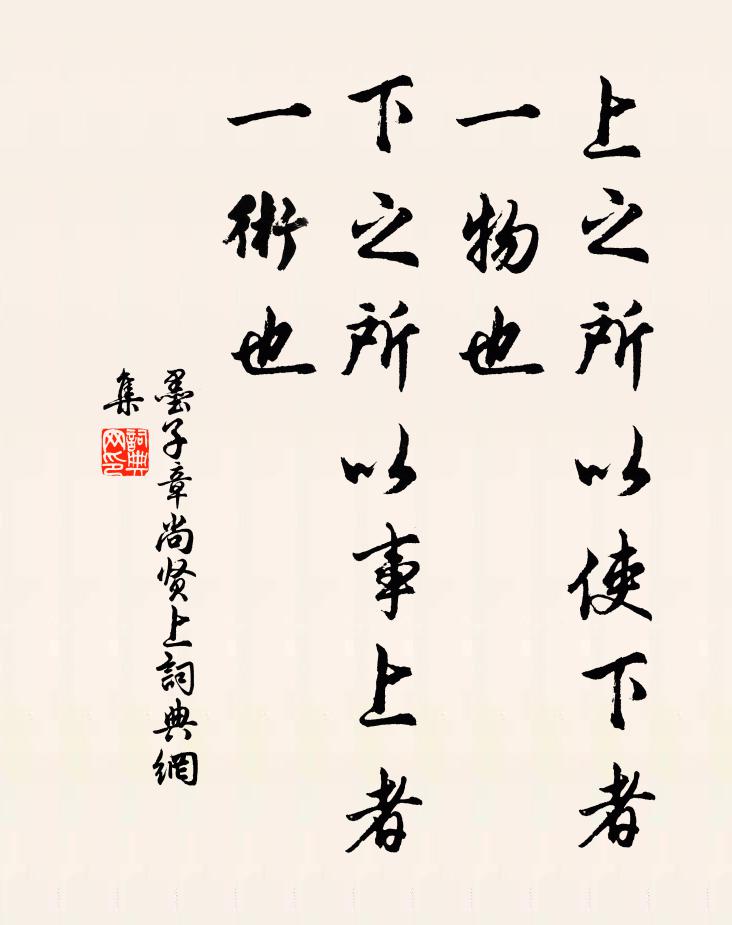 上之所以使下者
一物也
下之所以事上者
一術也
墨子章尚贤上詞典網
集
詞典
网印